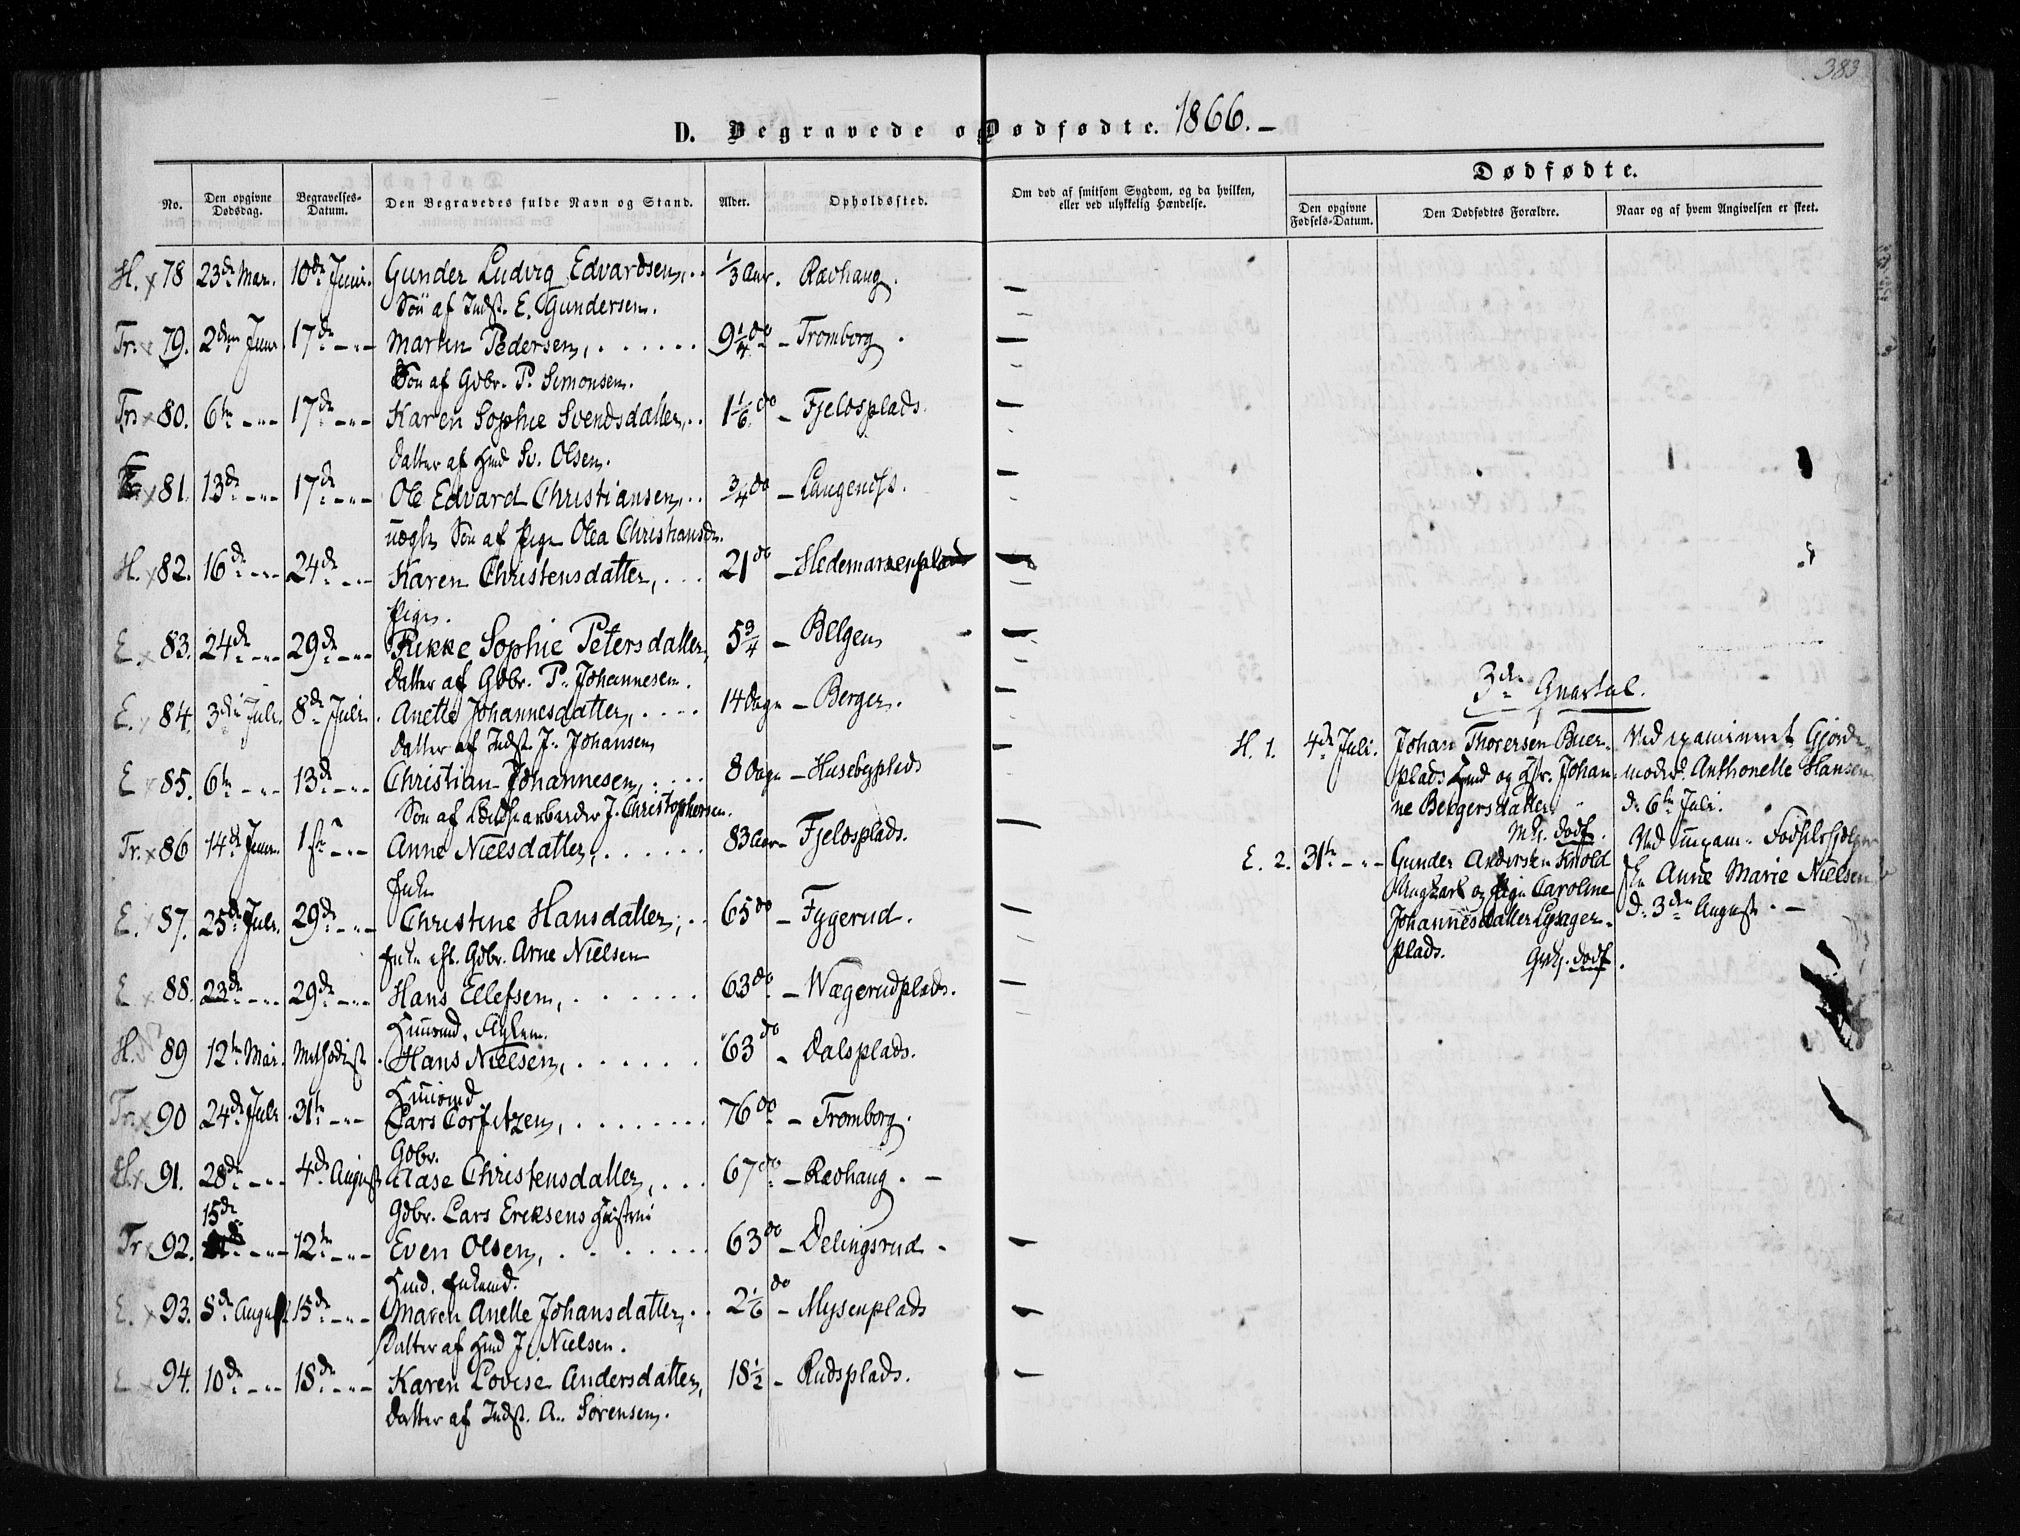 383
D. Begravede og Dødfødte. 1866. –
No. Den opgivne Dødsdag. Begravelses-Datum. Den Begravedes fulde Navn og Stand. Alder. Opholdssted. Om død af smitsom Sygdom, og da hvilken, eller ved ulykkelig Hændelse.
Dødfødte.
Den opgivne Fødsels-Datum. Den Dødfødtes Forældre. Naar og af hvem Angivelsen er skeet.
H. x 78 23de Mai. 10de Juni. Gunder Ludvig Edvardsen, . . 1/3 Aar. Rævhaug. –
Søn af Indst. E. Gundersen.
Tr. x 79. 2den Juni. 17de – " – Martin Pedersen, . . . . . 9 1/4 do – Tromborg. –
Søn af Gdbr. P. Simonsen.
Tr. x 80. 6te – " – 17de – " – Karen Sophie Svendsdatter, . . 1 1/6 do – Fjeldsplads. –
Datter af Hmd Sv. Olsen.
E. x 81. 13de – " – 17de – " – Ole Edvard Christiansen, . . 3/4 do – Langenæs. –
uægte Søn af Pige Olea Christiansdr.
H. x 82. 16de – " – 24de – " – Karen Christensdatter, . . . 21 do – Hedemarkenplads –
Pige.
E. x 83. 24de – " – 29de – " – Rikke Sophie Petersdatter, 5 3/4 – Belgen –
Datter af Gdbr. P. Johannesen.
E. x 84. 3die Juli. 8de Juli. Anette Johannesdatter, . . . . 14 Dage – Berger. –
Datter af Indst. J. Johansen
E x 85. 6te – " – 13de – " – Christian Johannesen, . . . . 8 Dage – Husebyplads –
Søn af Arbeider J. Christophersen.
Tr. x 86 14de Juni. 1ste – " – Anne Nielsdatter, . . . . . . 83 Aar – Fjeldsplads. –
Enke
E. x 87. 25de Juli. 29de – " – Christine Hansdatter, . . 65 do – Fygerud. –
Enke eft. Gdbr. Arne Nielsen
E x 88. 23de – " – 29de – " – Hans Ellefsen, . . . . . . 63 do – Wægerudplads. –
Huusmd,
H. 89 12te Mai. Methodist. Hans Nielsen, . . . . . . 63 do – Dalsplads.
Huusmd
Tr. x 90 24de Juli. 31te – " – Lars Corfitzen, . . . . . . . 76 do – Tromborg.
Gdbr.
H. x 91. 28de – " – 4de August Aase Christensdatter, . . . 67 do – Rævhaug. –
Gdbr. Lars Eriksens Hustru
Tr x 92. 15de – " – 12te – " – Even Olsen, . . . . . . . 63 do – Delingsrud – –
Hmd, Enkemd.
E. x 93. 8de August 15de – " – Maren Anette Johansdatter, . . 2 1/6 do – Mysenplads –
Datter af Hmd J. Nielsen.
E x 94. 10de – " – 18de – " – Karen Lovise Andersdatter, 18 1/2 – Rudsplads. –
Datter af Indst. A. Sørensen.
3die Quartal.
H. 1. 4de Juli. Johan Thoresen Buer- Ved examineret Gjorde-
plads Hmd og Hstr. Johan- moder Anthonette Hansen
ne Bergersdatter d. 6te Juli.
Mk. dødf.
E. 2. 31te – " – Gunder Andersen Knold Ved Fødselshjelper
Ungkarl og Pige Caroline Anne Marie Nielsen
Johannesdatter Lysager- d. 3die August. –
plads.
Qvk. dødf.